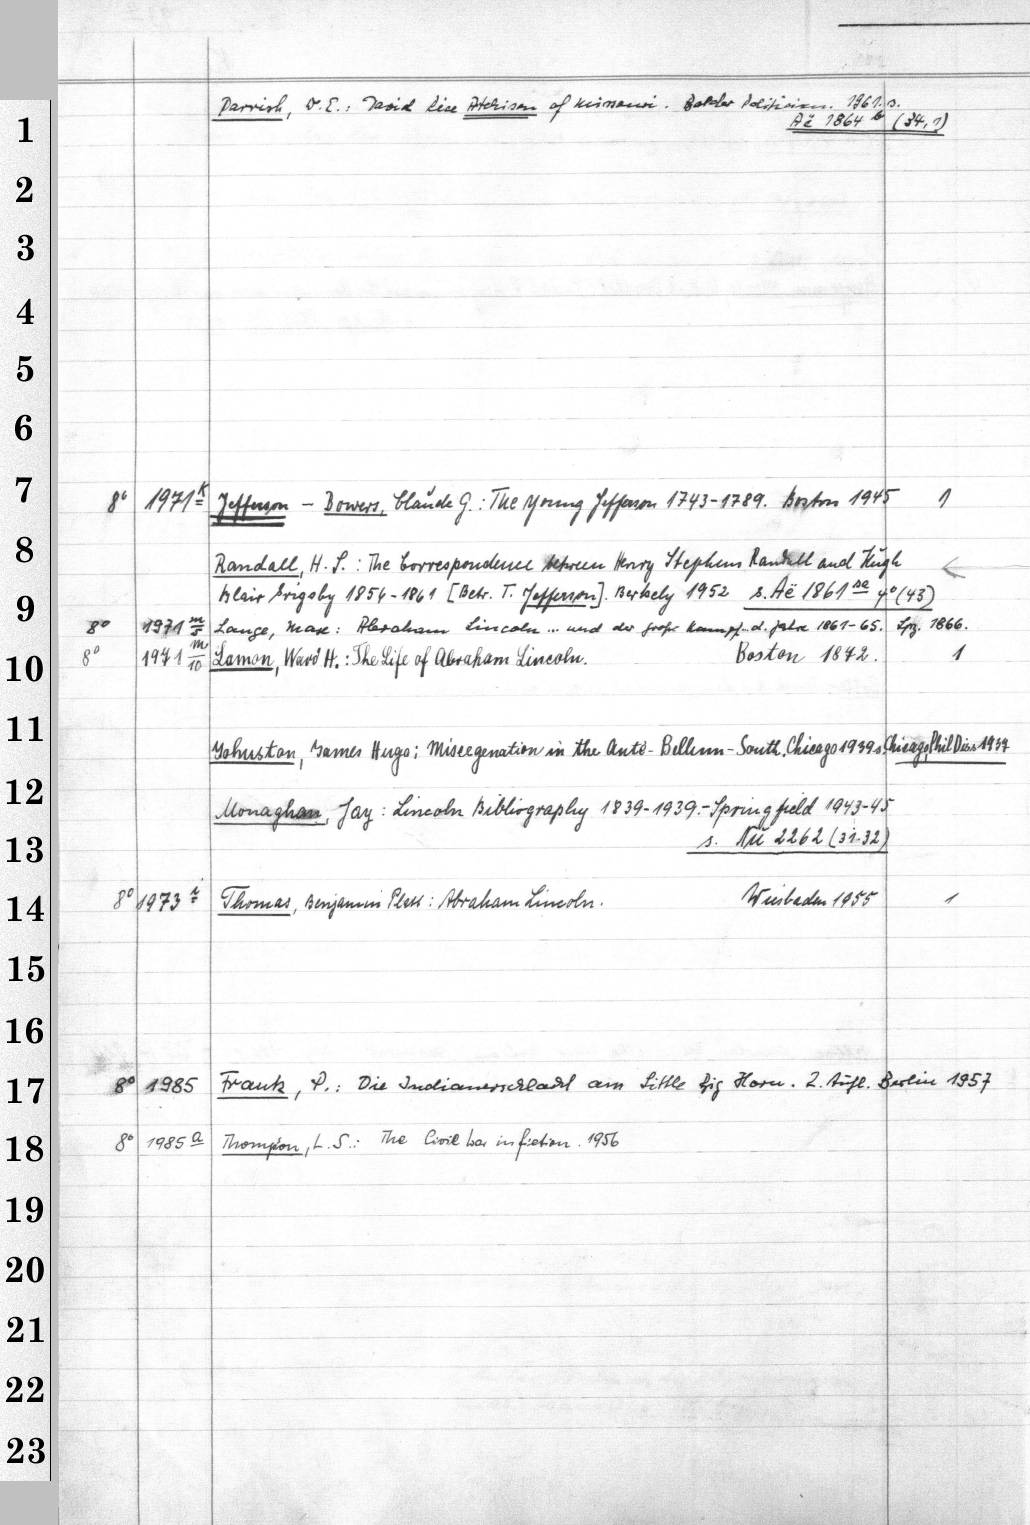 Parrish, W. E.: David Rice Atchison of Missouri. Border Politician. 1961. s.
Aë 1864 b (34,1)
1
2
3
4
5
6
7
8° 1971 k Jefferson – Bowers, Claude G.: The Young Jefferson 1743-1789. Boston 1945 1
8
Randall, H. S.: The Correspondence between Henry Stephens Randall and Hugh
Blair Grigsby 1856-1861 [Betr. T. Jefferson]. Berkely 1952 s. Aë 1861 sa 4° (43)
9
8° 1971 m/5 Lange, Max: Abraham Lincoln ... und der große Kampf .. d. Jahre 1861-65. Lpz. 1866.
10
8° 1971 m/10 Lamon, Ward H.: The Life of Abraham Lincoln. Boston 1872. 1
11
Johnston, James Hugo: Miscegenation in the Ante-Bellum-South. Chicago 1939 s. Chicago, Phil Diss 1937
12
Monaghan, Jay: Lincoln Bibliography 1839-1939. – Springfield 1943-45
13
s. Nü 2262 (31-32)
14
8° 1973 i Thomas, Benjamin Platt: Abraham Lincoln. Wiesbaden 1955 1
15
16
17
8° 1985 Frank, P.: Die Indianerschlacht am Little Big Horn. 2. Aufl. Berlin 1957
18
8° 1985 a Thompson, L. S.: The Civil war in fiction. 1956
19
20
21
22
23